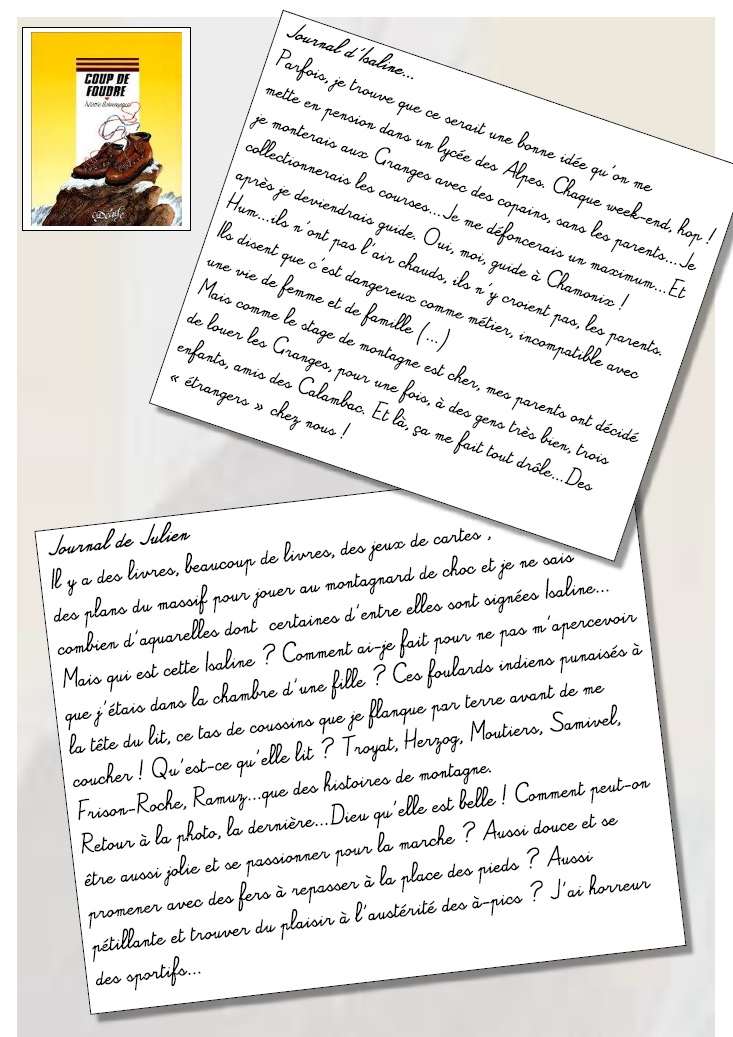 COUP DE
FOUDRE
Journal d'Isaline...
Parfois, je trouve que ce serait une bonne idée qu'on me
mette en pension dans un lycée des Alpes. Chaque week-end, hop !
je monterais aux Granges avec des copains, sans les parents...Je
collectionnerais les courses...Je me défoncerais un maximum...Et
après je deviendrais guide. Oui, moi, guide à Chamonix !
Hum...ils n'ont pas l'air chauds, ils n'y croient pas, les parents.
Ils disent que c'est dangereux comme métier, incompatible avec
une vie de femme et de famille (...)
Mais comme le stage de montagne est cher, mes parents ont décidé
de louer les Granges, pour une fois, à des gens très bien, trois
enfants, amis des Calambac. Et là, ça me fait tout drôle...Des
« étrangers » chez nous !
Journal de Julien
Il y a des livres, beaucoup de livres, des jeux de cartes ,
des plans du massif pour jouer au montagnard de choc et je ne sais
combien d'aquarelles dont certaines d'entre elles sont signées Isaline...
Mais qui est cette Isaline ? Comment ai-je fait pour ne pas m'apercevoir
que j'étais dans la chambre d'une fille ? Ces foulards indiens punaisés à
la tête du lit, ce tas de coussins que je flanque par terre avant de me
coucher ! Qu'est-ce qu'elle lit ? Troyat, Herzog, Moutiers, Samivel,
Frison-Roche, Ramuz...que des histoires de montagne.
Retour à la photo, la dernière...Dieu qu'elle est belle ! Comment peut-on
être aussi jolie et se passionner pour la marche ? Aussi douce et se
promener avec des fers à repasser à la place des pieds ? Aussi
pétillante et trouver du plaisir à l'austérité des à-pics ? J'ai horreur
des sportifs...